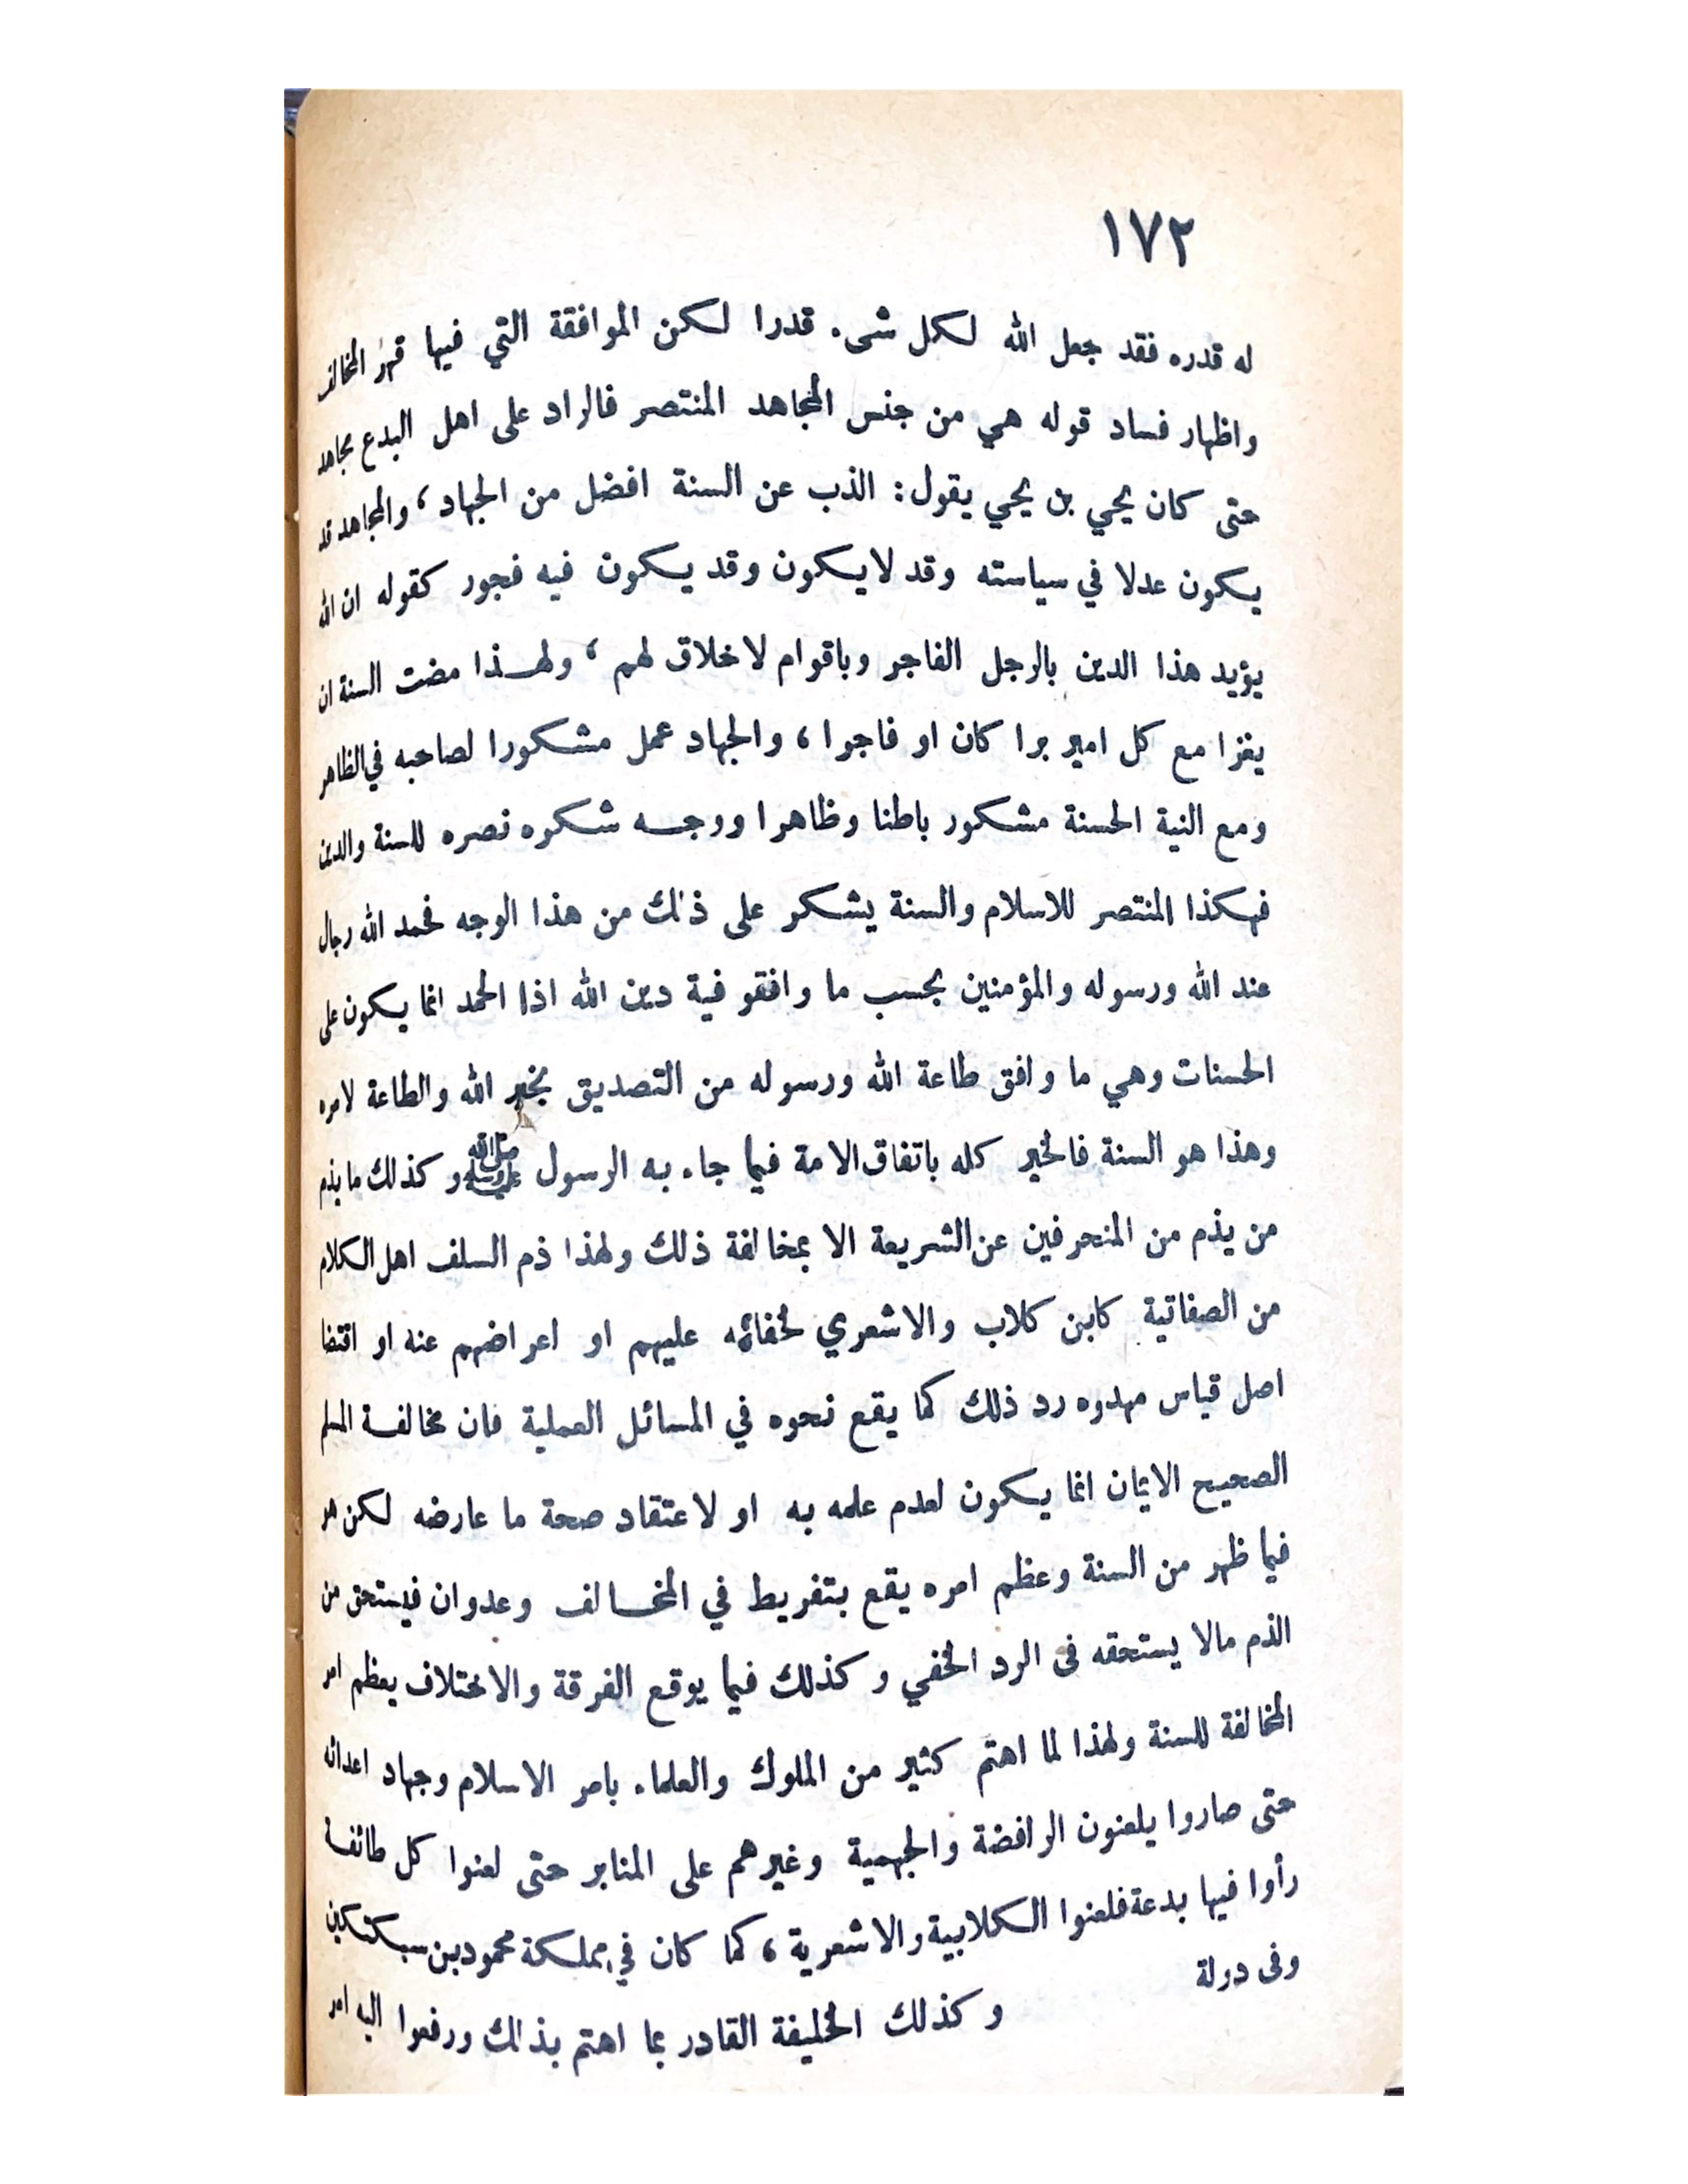 ١٧٢
له قدره فقد جعل الله لكل شىء قدرا لكن الموافقة التي فيها قهر المخالف
واظهار فساد قوله هي من جنس المجاهد المنتصر فالراد على اهل البدع مجاهد
حتى كان يحيي بن يحيي يقول : الذب عن السنة افضل من الجهاد ، والمجاهد قد
يكون عدلا في سياسته وقد لايكون وقد يكون فيه فجور كقوله ان الله
يؤيد هذا الدين بالرجل الفاجر وباقوام لاخلاق لهم ، ولهذا مضت السنة ان
يغزا مع كل امير برا كان او فاجرا ، والجهاد عمل مشكورا لصاحبه في الظاهر
ومع النية الحسنة مشكور باطنا وظاهرا ووجه شكره نصره للسنة والدين
فهكذا المنتصر للاسلام والسنة يشكر على ذلك من هذا الوجه فحمد الله رجال
عند الله ورسوله والمؤمنين بحسب ما وافقو فية دين الله اذا الحمد انما يكون على
الحسنات وهي ما وافق طاعة الله ورسوله من التصديق بخبر الله والطاعة لامره
وهذا هو السنة فالخير كله باتفاق الامة فيما جاء به الرسول صلى الله عليه وسلم وكذلك ما يذم
من يذم من المنحرفين عن الشريعة الا بمخالفة ذلك ولهذا ذم السلف اهل الكلام
من الصفاتية كابن كلاب والاشعري لخفائه عليهم او اعراضهم عنه او اقتضا
اصل قياس مهدوه رد ذلك كما يقع نحوه في المسائل العملية فان مخالفة المسلم
الصحيح الايمان انما يكون لعدم علمه به او لاعتقاد صحة ما عارضه لكن هو
فيما ظهر من السنة وعظم امره يقع بتفريط في المخالف وعدوان فيستحق من
الذم مالا يستحقه فى الرد الخفي وكذلك فيما يوقع الفرقة والاختلاف يعظم امر
المخالفة للسنة ولهذا لما اهتم كثير من الملوك والعلماء بامر الاسلام وجهاد اعدائه
حتى صاروا يلعنون الرافضة والجهمية وغيرهم على المنابر حتى لعنوا كل طائفة
رأوا فيها بدعة فلعنوا الكلابية والاشعرية ، كما كان في مملكة محمود بن سبكتكين
وفى دولة وكذلك الخليفة القادر بما اهتم بذلك ورفعوا اليه امر